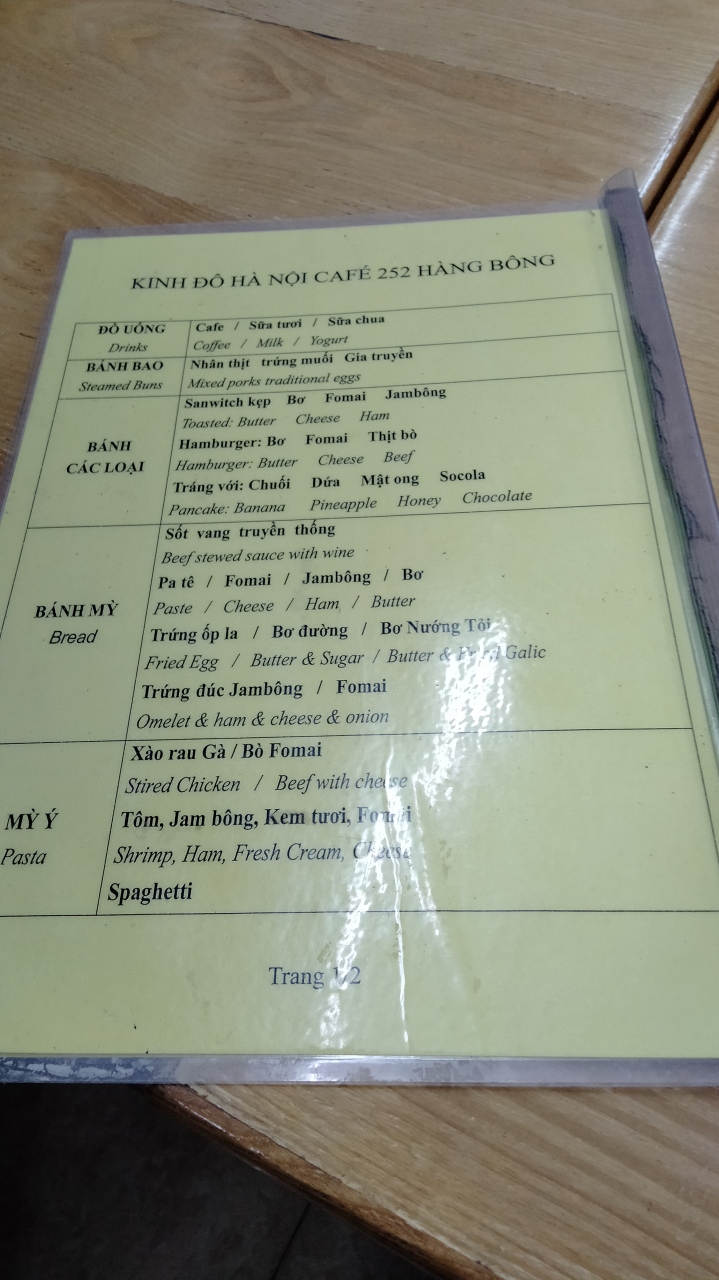 KINH ĐÔ HÀ NỘI CAFÉ 252 HÀNG BÔNG
ĐỒ UỐNG
Drinks
Cafe / Sữa tươi / Sữa chua
Coffee / Milk / Yogurt
BÁNH BAO
Steamed Buns
Nhân thịt trứng muối Gia truyền
Mixed porks traditional eggs
BÁNH
CÁC LOẠI
Sanwitch kẹp Bơ Fomai Jambông
Toasted: Butter Cheese Ham
Hamburger: Bơ Fomai Thịt bò
Hamburger: Butter Cheese Beef
Tráng với: Chuối Dứa Mật ong Socola
Pancake: Banana Pineapple Honey Chocolate
BÁNH MỲ
Bread
Sốt vang truyền thống
Beef stewed sauce with wine
Pa tê / Fomai / Jambông / Bơ
Paste / Cheese / Ham / Butter
Trứng ốp la / Bơ đường / Bơ Nướng Tỏi
Fried Egg / Butter & Sugar / Butter & Fried Galic
Trứng đúc Jambông / Fomai
Omelet & ham & cheese & onion
MỲ Ý
Pasta
Xào rau Gà / Bò Fomai
Stired Chicken / Beef with cheese
Tôm, Jam bông, Kem tươi, Fomai
Shrimp, Ham, Fresh Cream, Cheese
Spaghetti
Trang 1/2